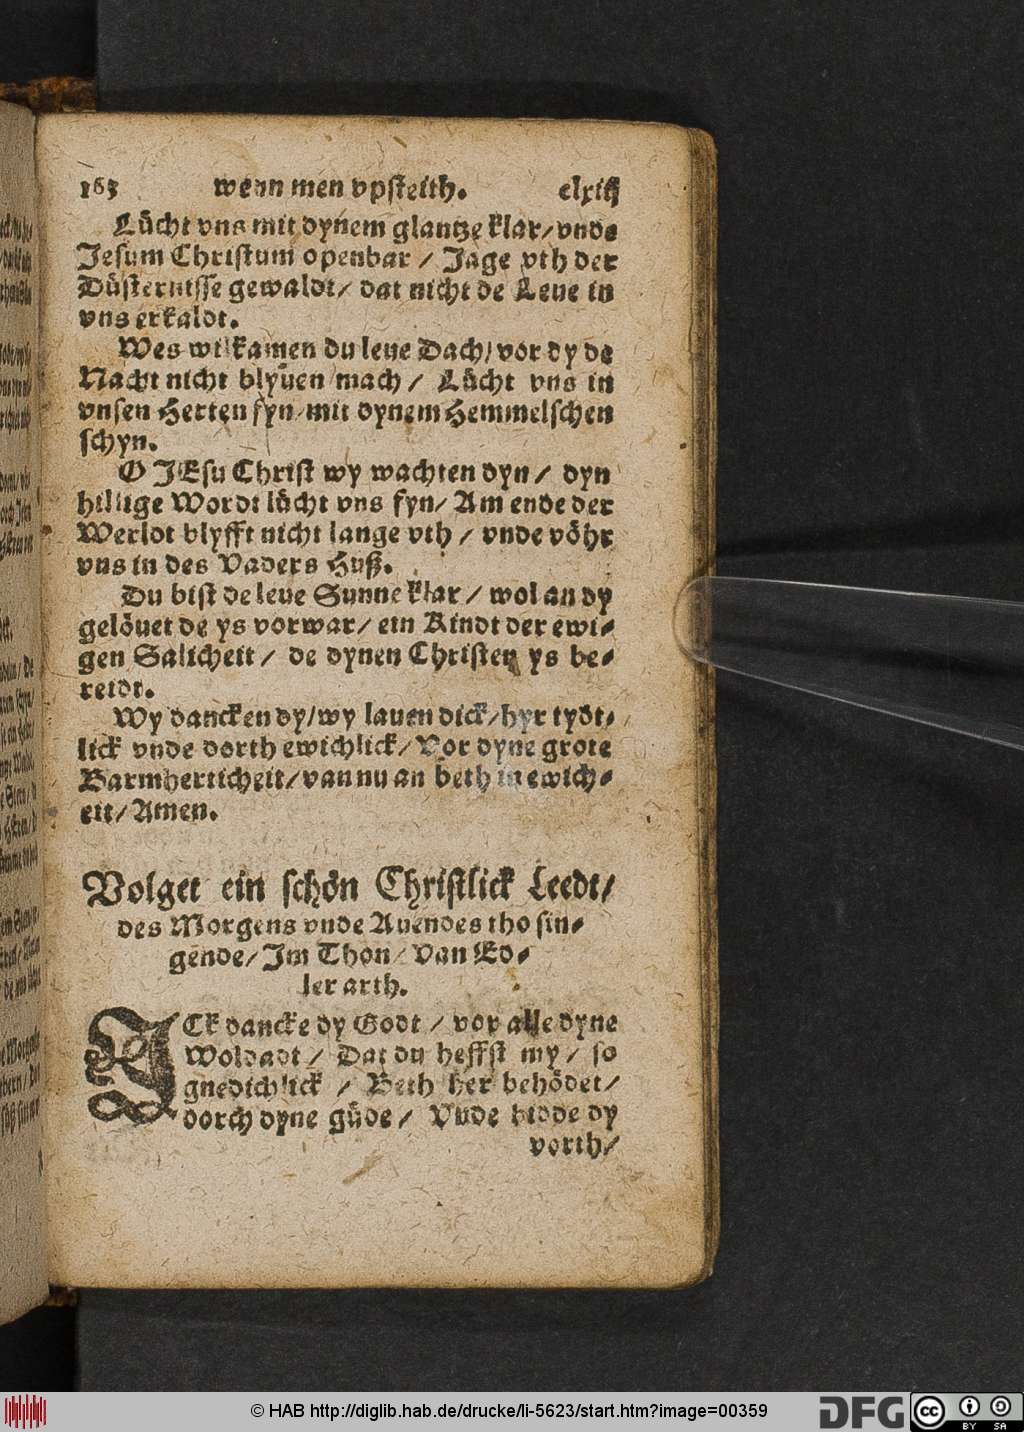 163 wenn men vpsteith. clxiij
Lücht vns mit dynem glantze klar/ vnde
Jesum Christum openbar / Jage vth der
Düsternisse gewaldt/ dat nicht de Leue in
vns erkaldt.
Wes wilkamen du leue Dach/ vor dy de
Nacht nicht blyuen mach / Lücht vns in
vnsen Herten fyn/ mit dynem Hemmelschen
schyn.
O JEsu Christ wy wachten dyn / dyn
hillige Wordt lücht vns fyn/ Am ende der
Werlot blyfft nicht lange vth / vnde vöhr
vns in des Vaders Huß.
Du bist de leue Sunne klar / wol an dy
gelöuet de ys vorwar/ ein Kindt der ewi-
gen Salicheit / de dynen Christen ys be-
reidt.
Wy dancken dy/ wy lauen dick/ hyr tydt-
lick vnde dorth ewichlick/ Vor dyne grote
Barmherticheit/ van nu an beth in ewich-
eit/ Amen.
Volget ein schön Christlick Leedt/
des Morgens vnde Auendes tho sin-
gende/ Im Thon/ Van Ed-
ler arth.
ICk dancke dy Godt / vor alle dyne
Woldadt / Dat du heffst my / so
gnedichlick / Beth her behödet/
dorch dyne güde / Vnde bidde dy
vorth/
© HAB http://diglib.hab.de/drucke/li-5623/start.htm?image=00359
DFG
cc BY SA